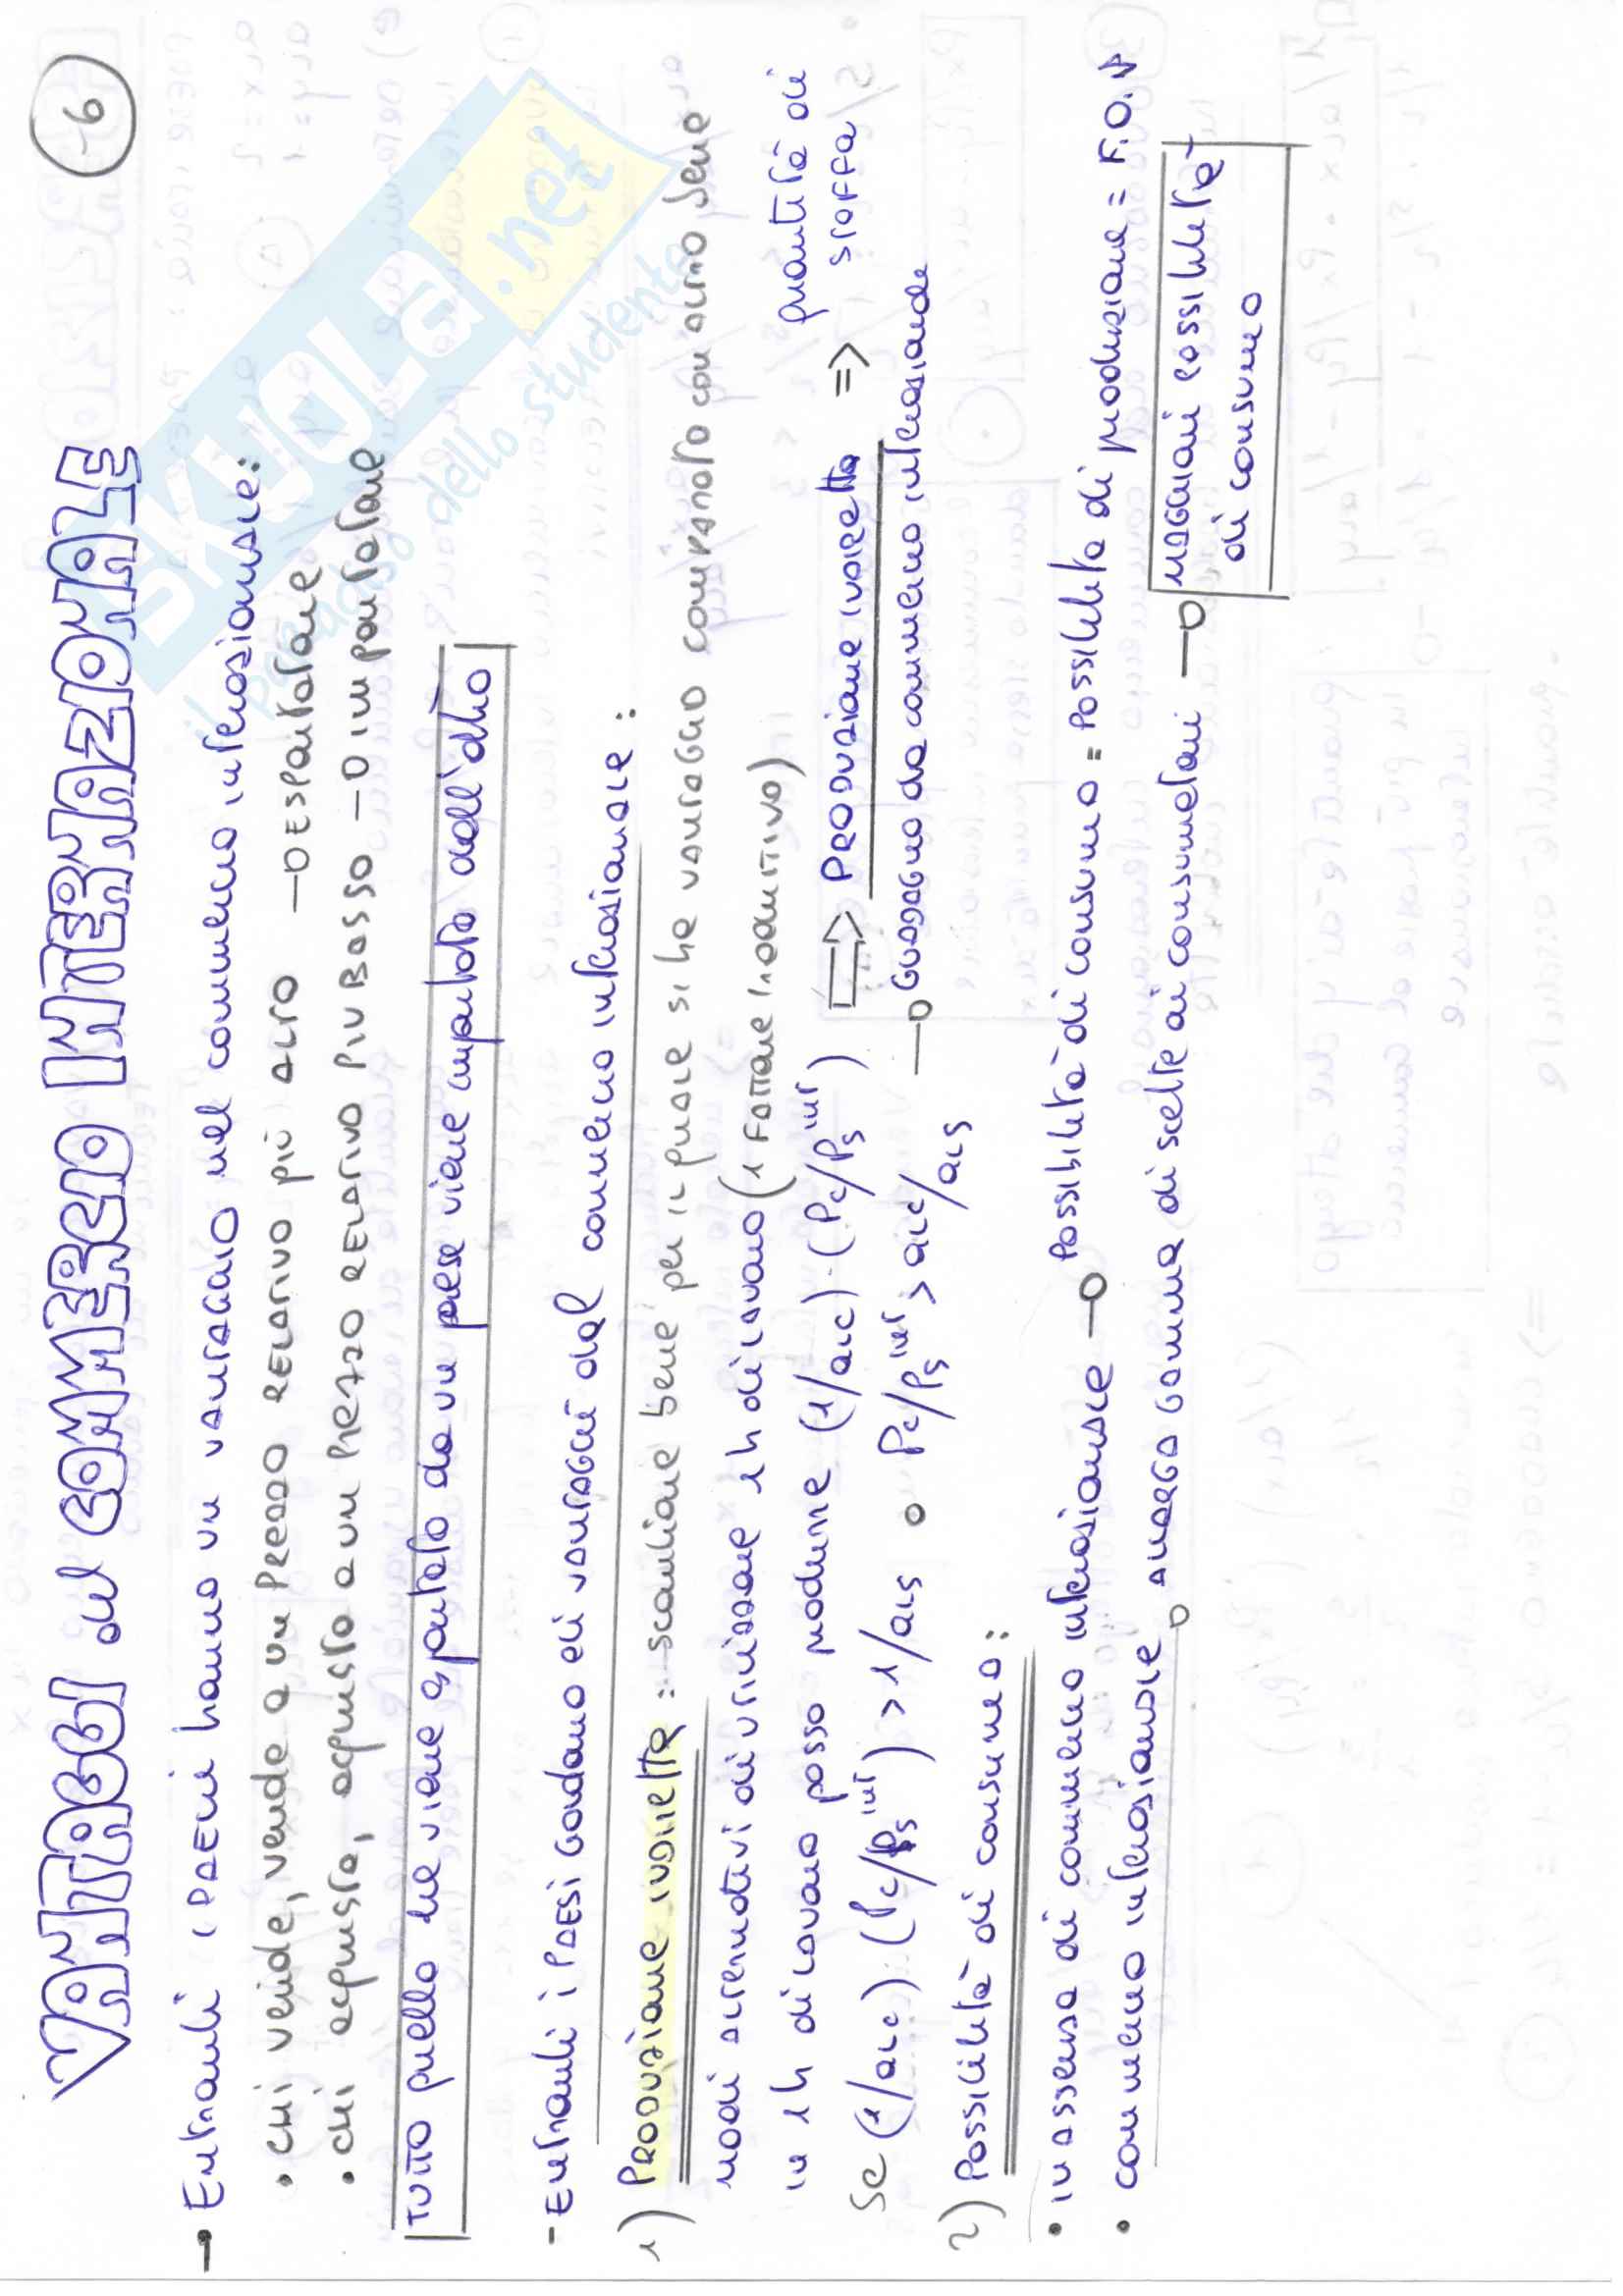 VANTAGGI del COMMERCIO INTERNAZIONALE
-6
→ Entrambi i PAESI hanno un vantaggio nel commercio internazionale:
• chi vende, vende a un prezzo relativo più alto → esportatore
• chi acquista, acquista a un prezzo relativo più basso → importatore
Tutto quello che viene esportato da un paese viene importato dall'altro
- Entrambi i PAESI godono di vantaggi dal commercio internazionale:
1) Produzione indiretta: scambiare bene per il quale si ha vantaggio comparato con altro bene
modi alternativi di utilizzare 1h di lavoro (1 fattore produttivo)
in 1h di lavoro posso produrre (1/aLc) · (Pc/Ps int) ⇒ Produzione indiretta ⇒ quantità di stoffa
Se (1/aLc) (Pc/Ps int) > 1/aLs o Pc/Ps int > aLc/aLs → guadagno da commercio internazionale
2) Possibilità di consumo:
• in assenza di commercio internazionale → Possibilità di consumo = Possibilità di produzione = F.O.P
• commercio internazionale → allarga gamma di scelte ai consumatori → maggiori possibilità
di consumo
SKUOLA.net
il paradiso dello studente